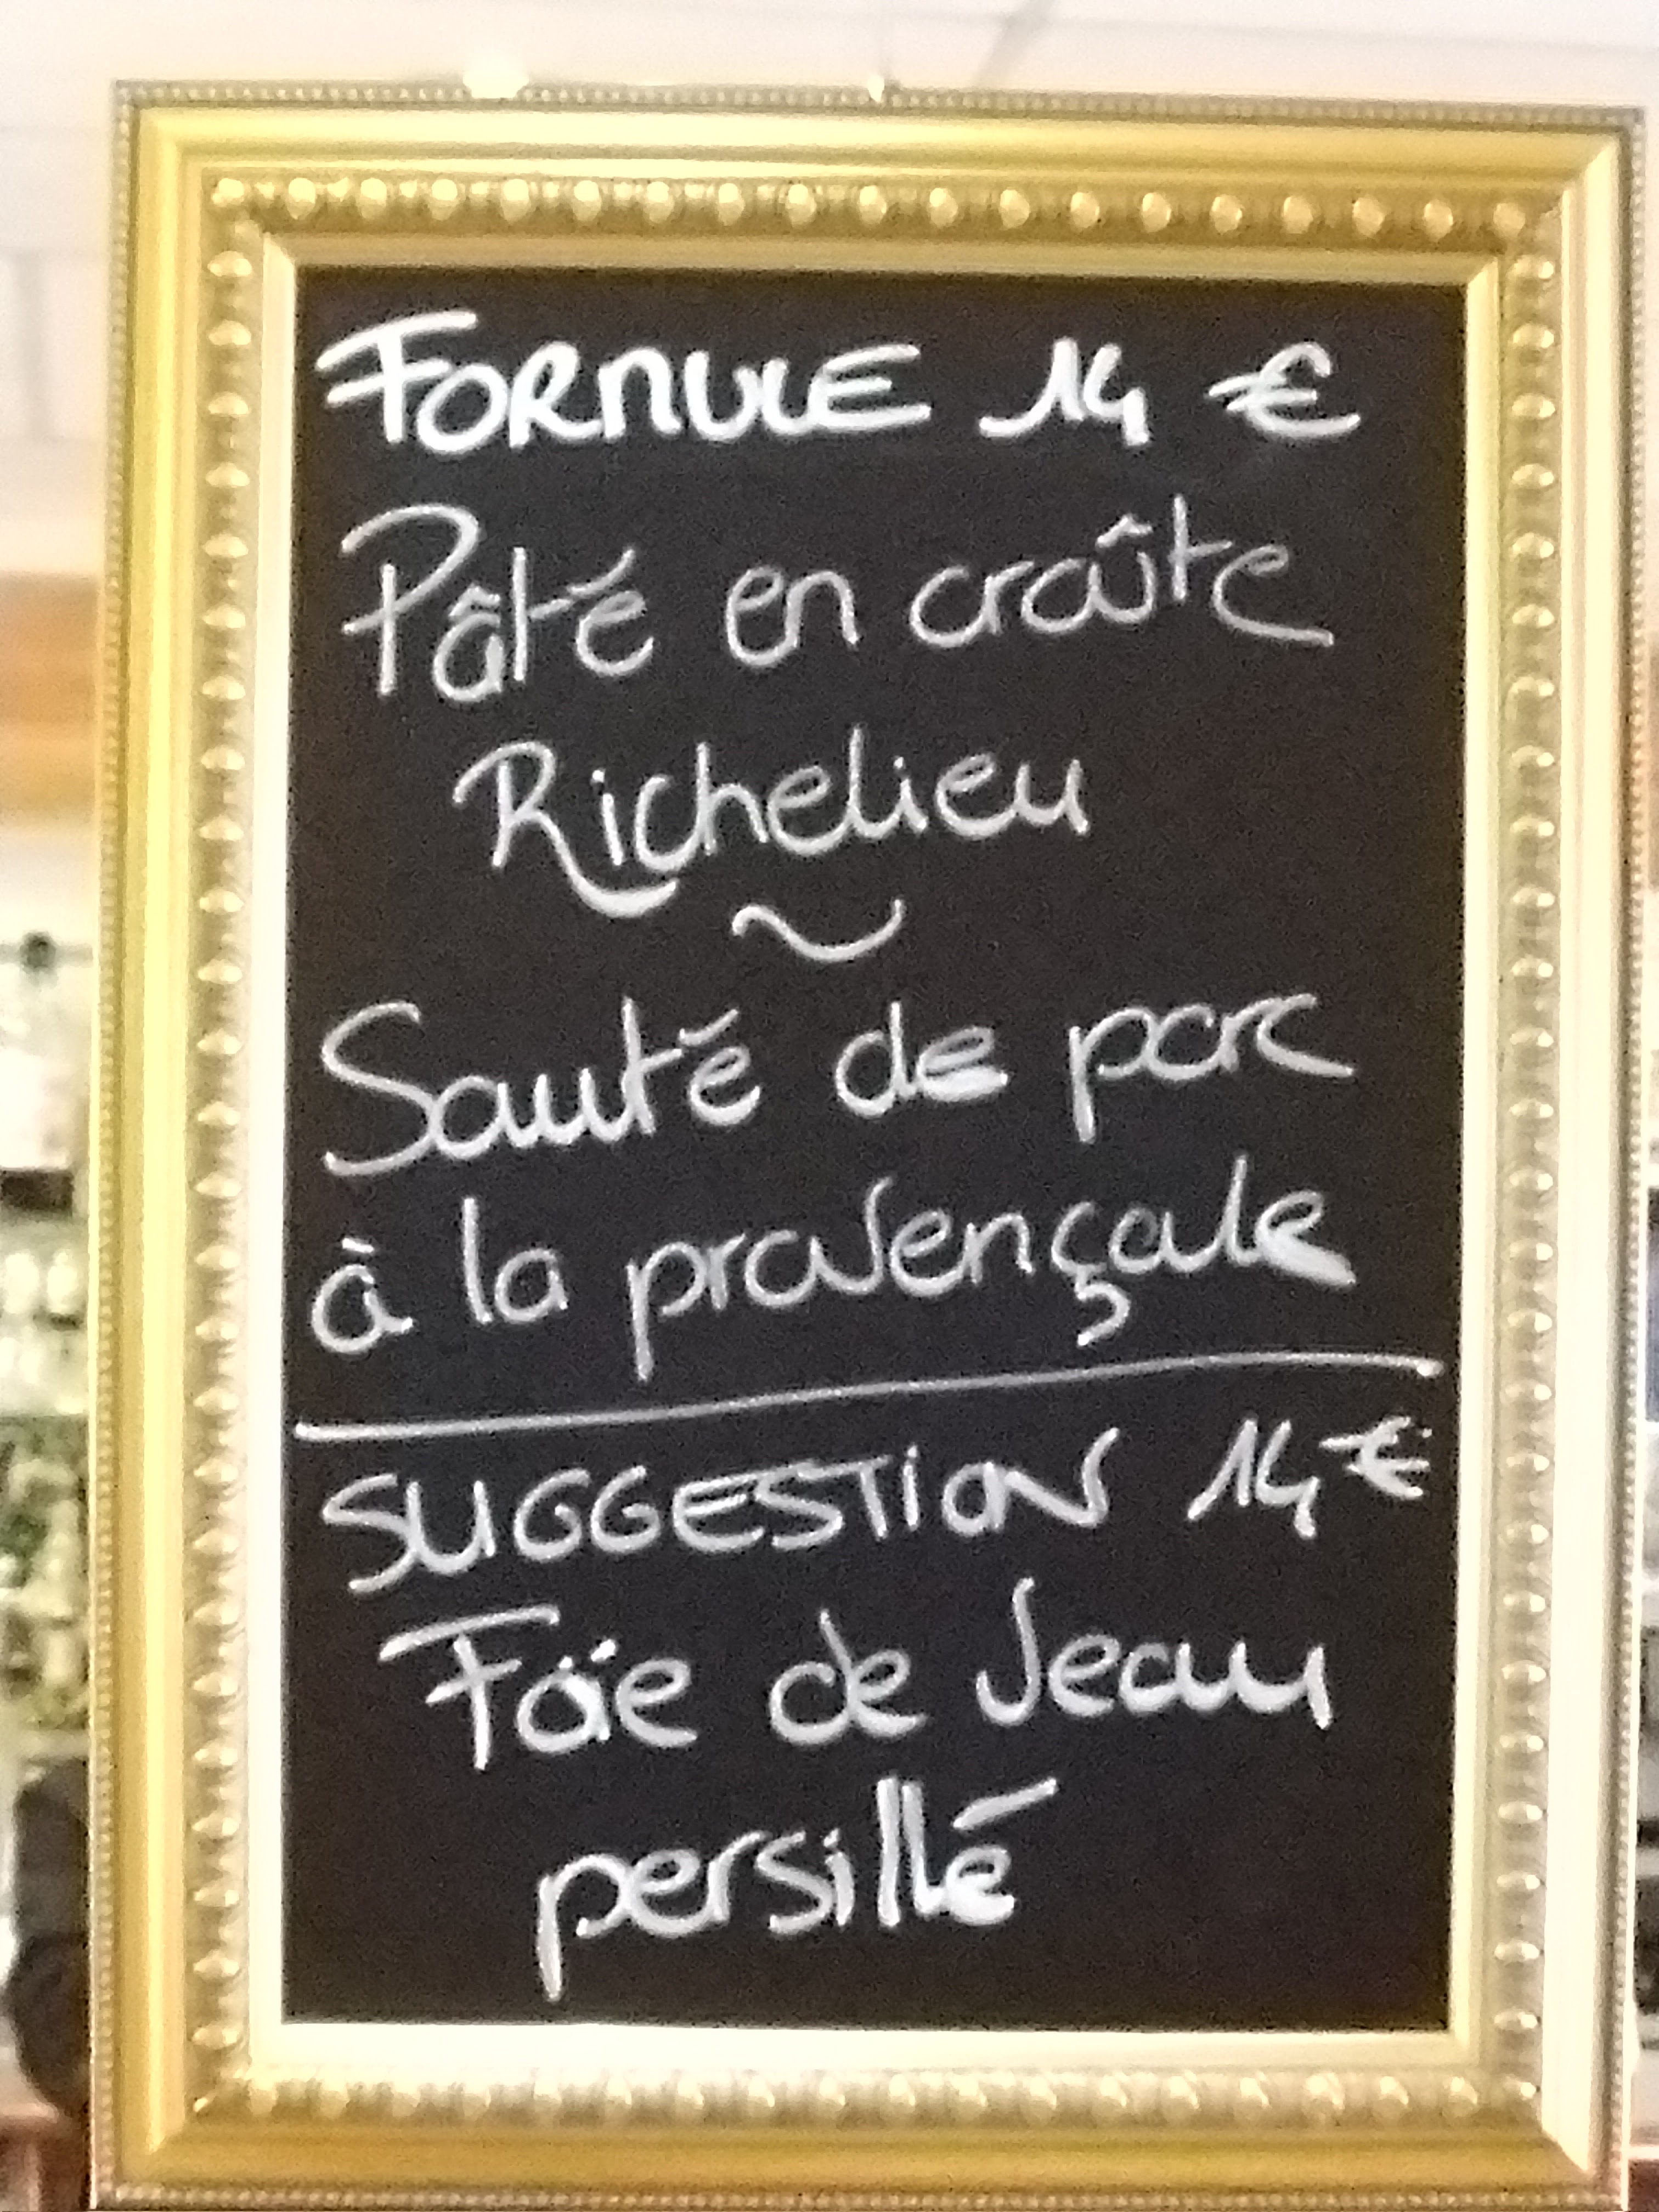 FORMULE 14 €
Pâté en croûte
Richelieu
~
Sauté de porc
à la provençale
SUGGESTION 14 €
Foïe de Veau
persillé